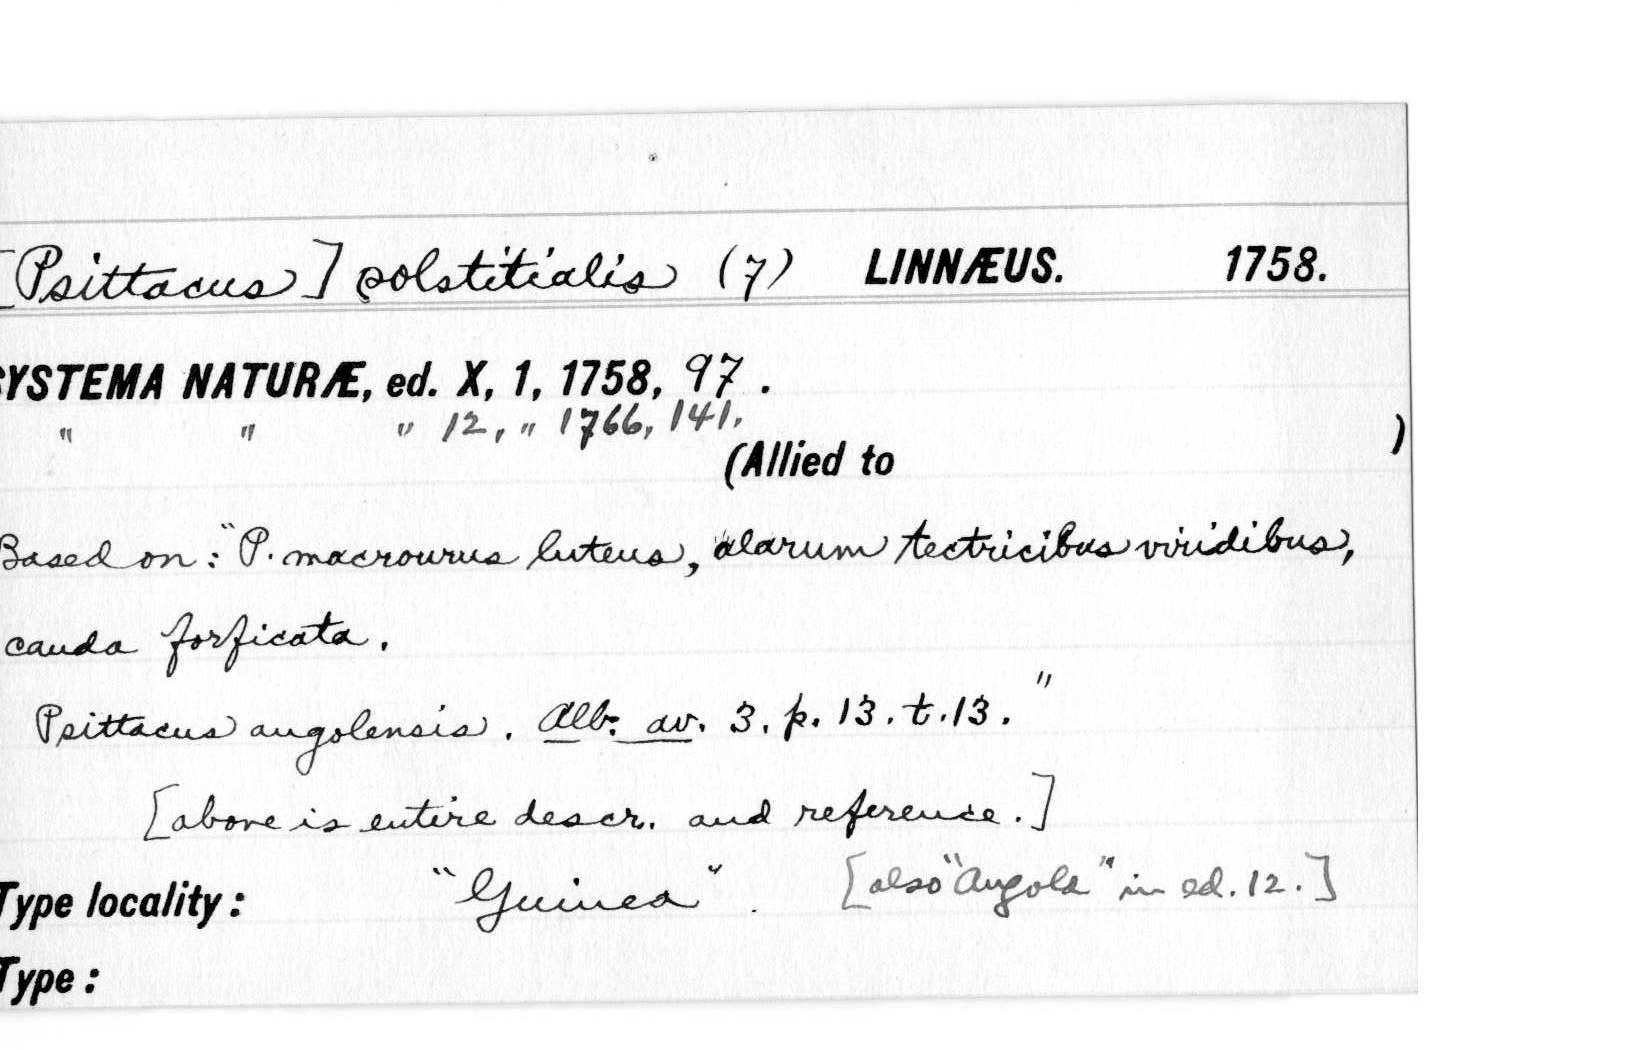 [Psittacus] solstitialis (7) LINNÆUS. 1758.
SYSTEMA NATURÆ, ed. X, 1, 1758, 97.
" " " 12, " 1766, 141.
(Allied to )
Based on: "P. macrourus luteus, alarum tectricibus viridibus,
cauda forficata.
Psittacus angolensis. Alb. av. 3. p. 13. t. 13."
[above is entire descr. and reference.]
Type locality: "Guinea". [also "Angola" in ed. 12.]
Type: